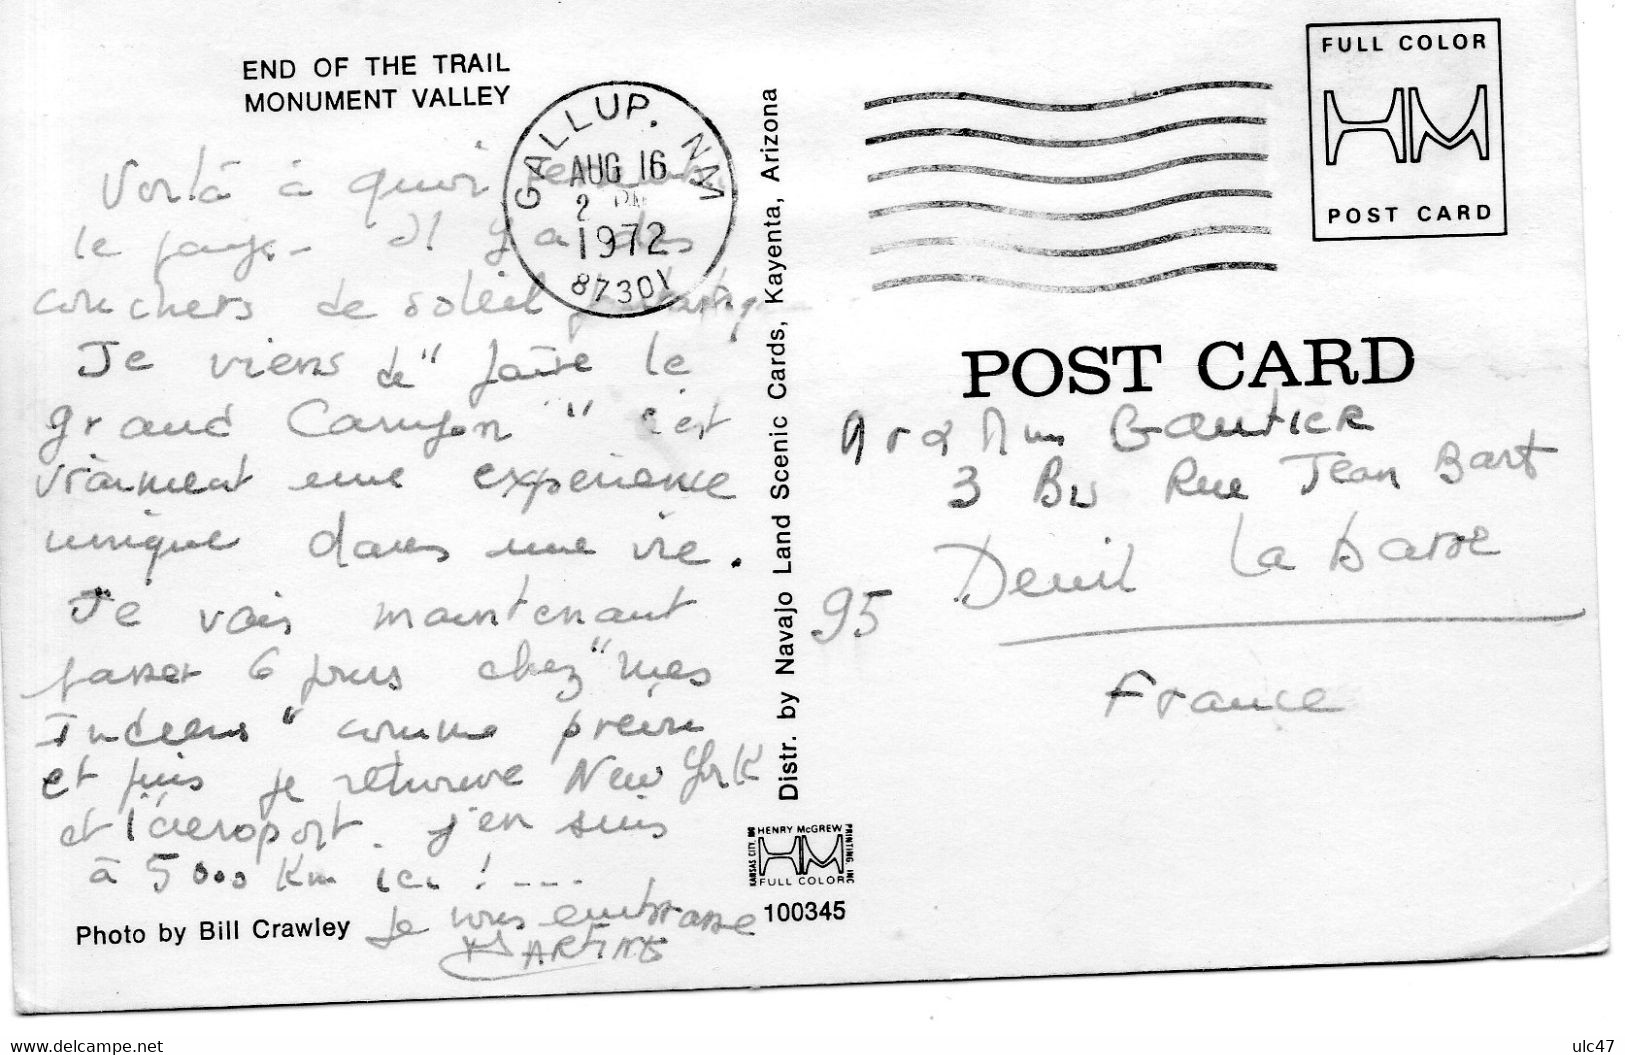 END OF THE TRAIL
MONUMENT VALLEY
GALLUP. NM
AUG 16
2 PM
1972
87301
Voilà à quoi ressemble
le pays. Il y a des
couchers de soleil fantastiques
Je viens de "faire le
grand Canyon" c'est
vraiment une expérience
unique dans une vie.
Je vais maintenant
passer 6 jours chez "mes
Indiens" comme prévu
et puis je retrouve New York
et l'aéroport. j'en suis
à 5000 Km ici ! ....
Je vous embrasse
MARTINE
Photo by Bill Crawley
Distr. by Navajo Land Scenic Cards, Kayenta, Arizona
KANSAS CITY, MO
HENRY McGREW
PRINTING, INC
HM
FULL COLOR
100345
FULL COLOR
HM
POST CARD
POST CARD
Mr & Mme GAUTIER
3 Bis Rue Jean Bart
95 Deuil La barre
France
delcampe.net
ulc47